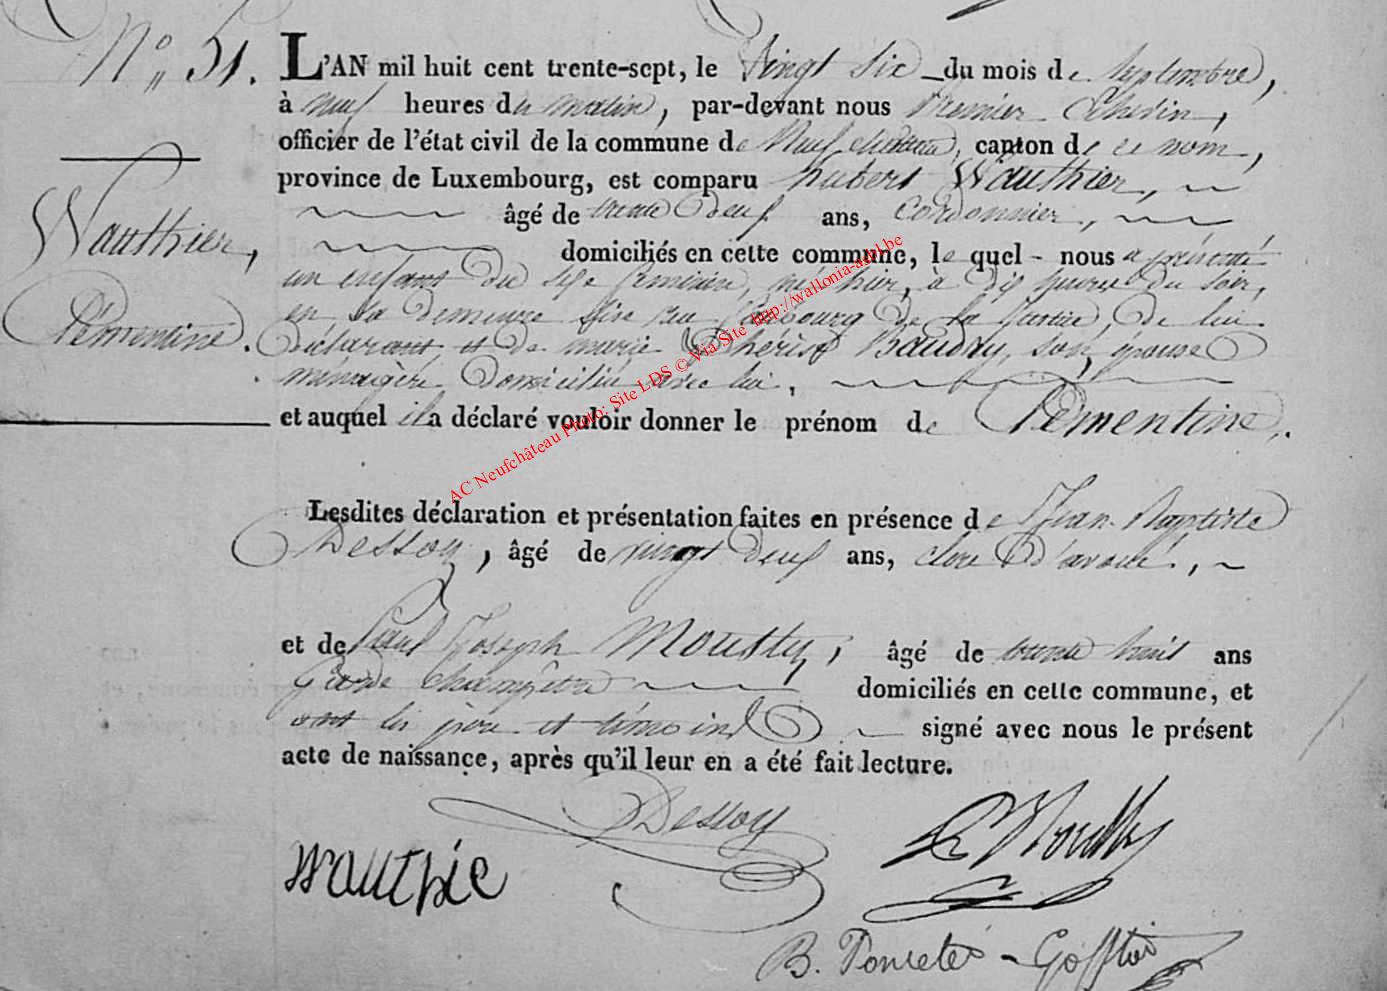 N° 51.
L'AN mil huit cent trente-sept, le Vingt Six du mois de Septembre,
à neuf heures du matin, par-devant nous Premier Echevin,
officier de l'état civil de la commune de Neufchateau, canton de ce nom,
province de Luxembourg, est comparu hubert Wauthier,
âgé de trente Deux ans, Cordonnier,
Wauthier,
domiciliés en cette commune, le quel - nous a présenté
un enfant du sexe feminin, né hier, à dix heures du soir,
Pémentine.
en sa demeure sise rue faubourg de la de lui
déclarant et de marie Thérèse Baudry, son epouse
menagère Domiciliée avec lui,
et auquel il a déclaré vouloir donner le prénom de Pémentine.
Lesdites déclaration et présentation faites en présence de Jean Baptiste
Dessoy, âgé de vingt Deux ans, clerc D'avoué,
et de Paul Joseph Moustty, âgé de trente huit ans
Garde Champêtre domiciliés en cette commune, et
ont les père et témoins signé avec nous le présent
acte de naissance, après qu'il leur en a été fait lecture.
Dessoy
Moustty
wauthie
B. Poncelet - Gofftoi
AC Neufchâteau Photo: Site LDS © Via Site http://wallonia-asbl.be